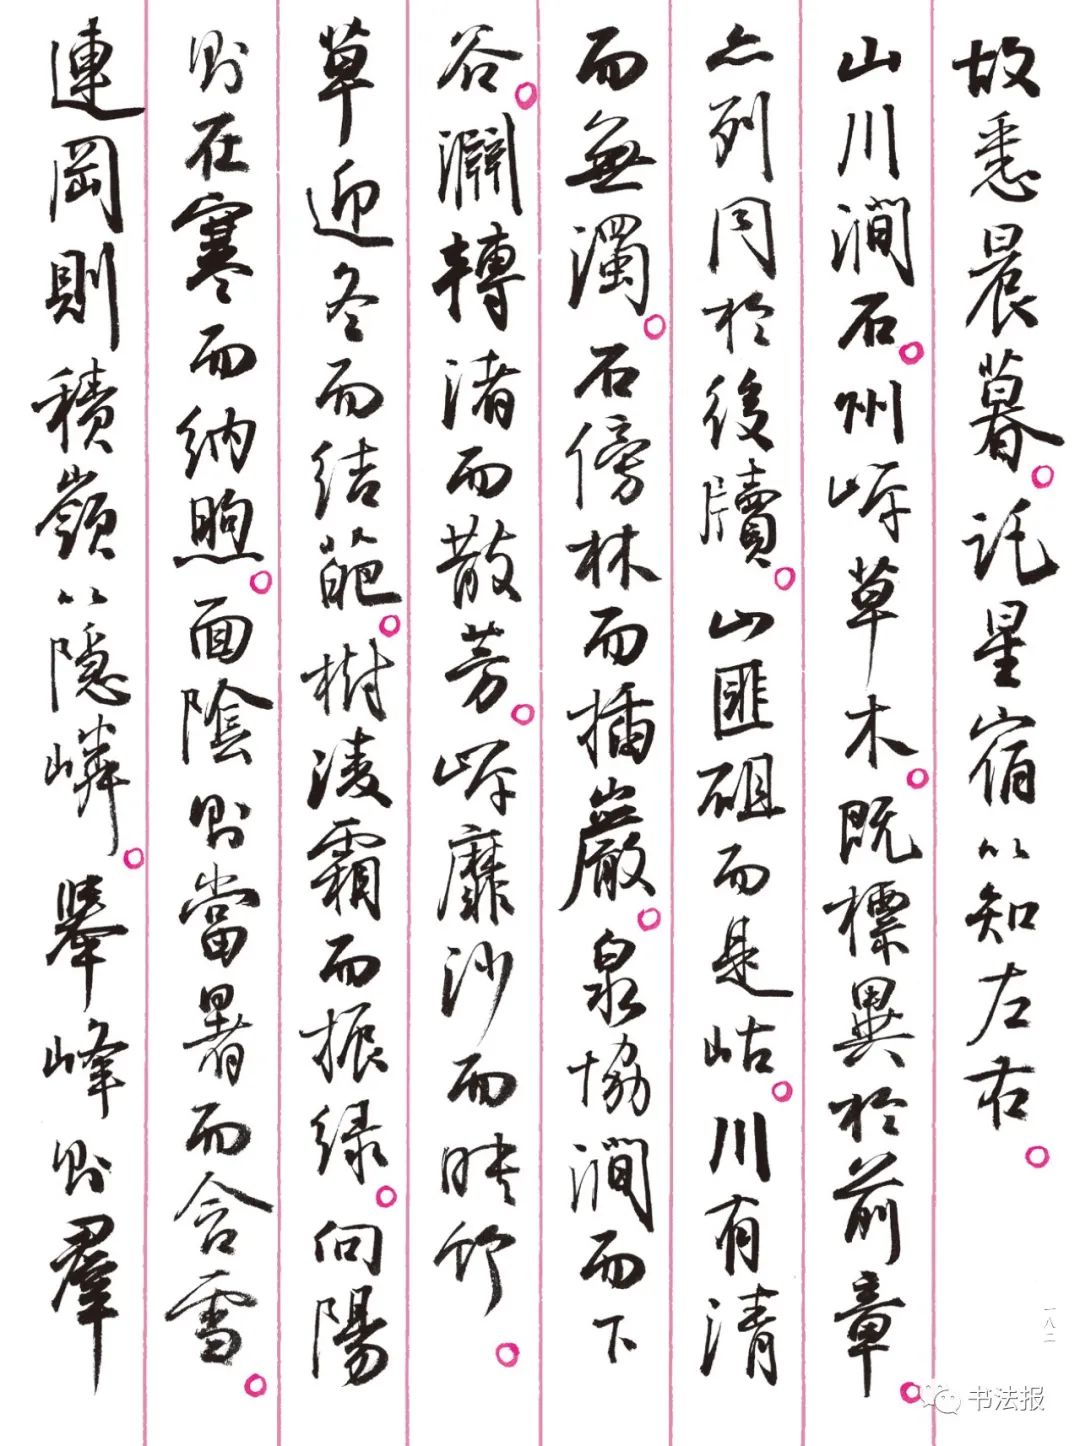 故悉晨暮。託星宿以知左右。
山川澗石。州岸草木。既標異於前章。
亦列同於後牘。山匪砠而是岵。川有清
而無濁。石傍林而插巖。泉協澗而下
谷。淵轉渚而散芳。岸靡沙而映竹。
草迎冬而結葩。樹淩霜而振綠。向陽
則在寒而納煦。面陰則當暑而含雪。
連岡則積嶺以隱嶙。舉峰則羣
一八二
书法报